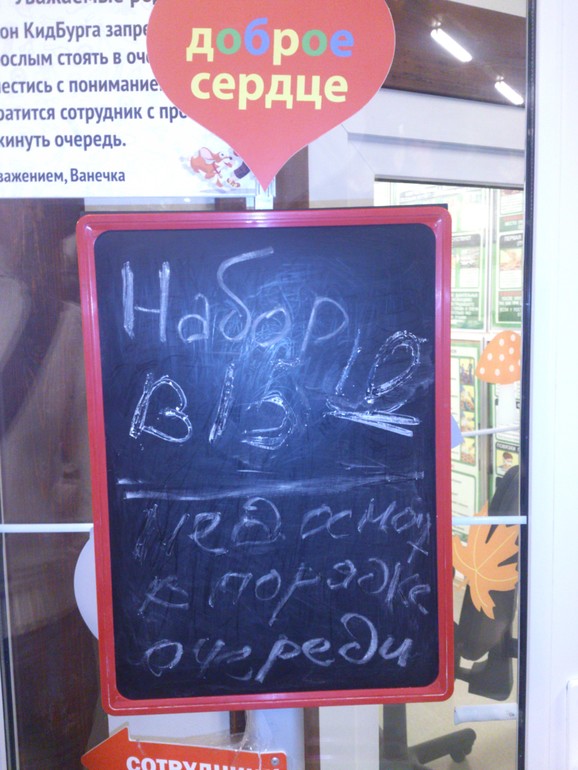 Уважаемые
он КидБурга запре
ослым стоять в оче
нестись с понимание
ратится сотрудник с про
кинуть очередь.
важением, Ванечка
доброе
сердце
Набор
в 15 10
Медосмотр
в порядке
очереди
СОТРУДНИ